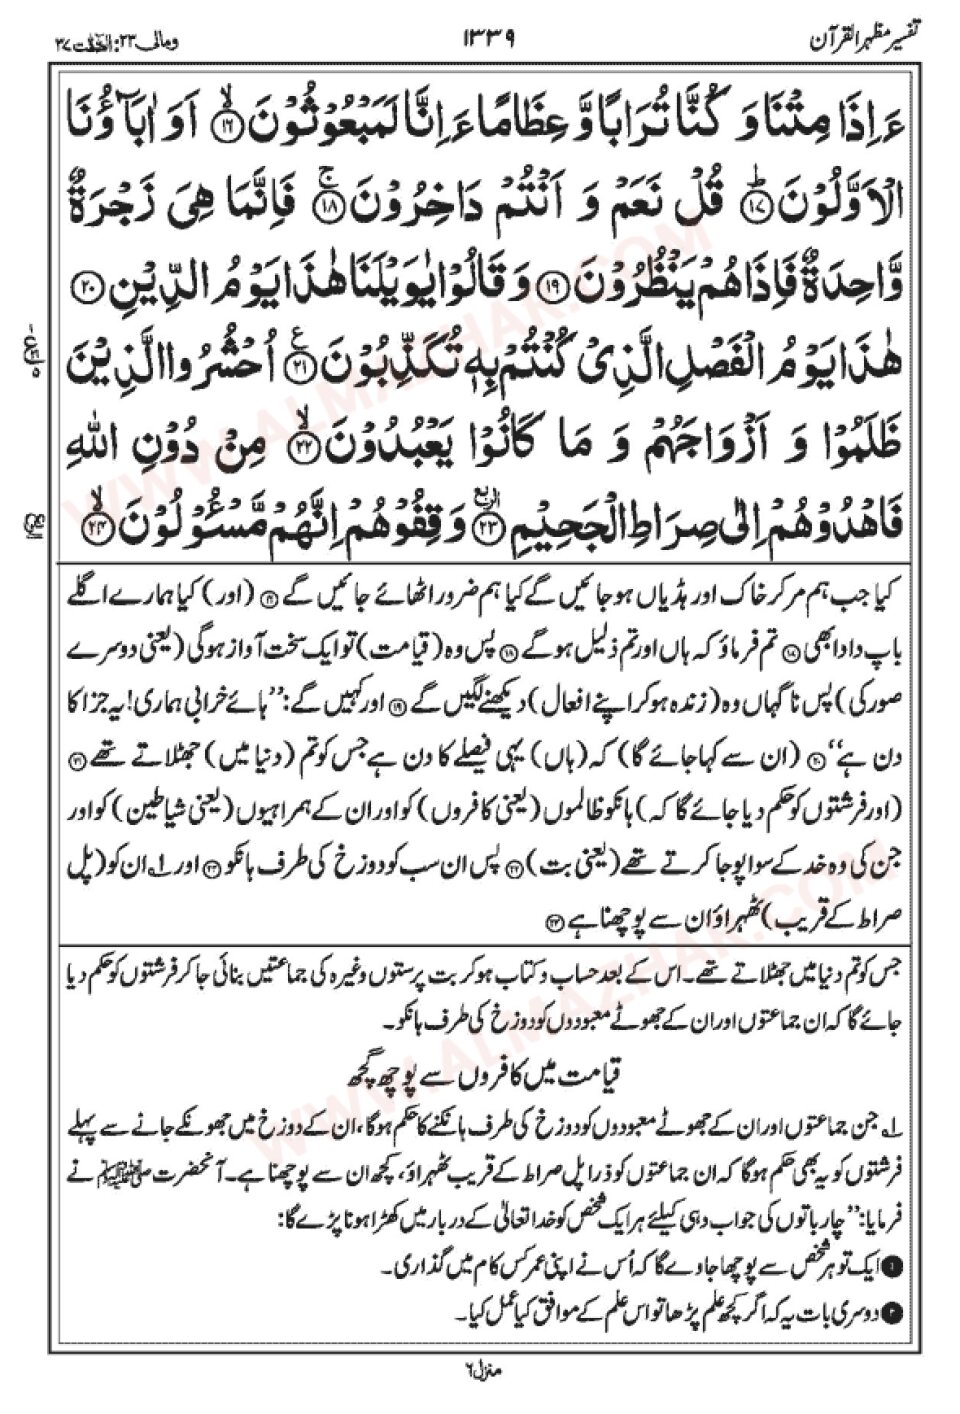 تفسیر مظہر القرآن ۱۳۳۹ ومالی ۲۳: الصّٰفّٰت ۳۷
ءَاِذَا مِتْنَا وَ كُنَّا تُرَابًا وَّ عِظَامًا ءَاِنَّا لَمَبْعُوْثُوْنَ ﴿۱۶﴾ۙ اَوَ اٰبَآؤُنَا
الْاَوَّلُوْنَ ﴿۱۷﴾ؕ قُلْ نَعَمْ وَ اَنْتُمْ دَاخِرُوْنَ ﴿۱۸﴾ۚ فَاِنَّمَا هِیَ زَجْرَةٌ
وَّاحِدَةٌ فَاِذَا هُمْ یَنْظُرُوْنَ ﴿۱۹﴾ وَ قَالُوْا یٰوَیْلَنَا هٰذَا یَوْمُ الدِّیْنِ ﴿۲۰﴾
هٰذَا یَوْمُ الْفَصْلِ الَّذِیْ كُنْتُمْ بِهٖ تُكَذِّبُوْنَ ﴿۲۱﴾ع اُحْشُرُوا الَّذِیْنَ
ظَلَمُوْا وَ اَزْوَاجَهُمْ وَ مَا كَانُوْا یَعْبُدُوْنَ ﴿۲۲﴾ۙ مِنْ دُوْنِ اللّٰهِ
فَاهْدُوْهُمْ اِلٰی صِرَاطِ الْجَحِیْمِ ﴿۲۳﴾ الربع وَ قِفُوْهُمْ اِنَّهُمْ مَّسْـُٔوْلُوْنَ ﴿۲۴﴾ۙ
الربع
کیا جب ہم مر کر خاک اور ہڈیاں ہو جائیں گے کیا ہم ضرور اٹھائے جائیں گے ﴿۱۶﴾ (اور) کیا ہمارے اگلے
باپ دادا بھی ﴿۱۷﴾ تم فرماؤ کہ ہاں اور تم ذلیل ہو گے ﴿۱۸﴾ پس وہ (قیامت) تو ایک سخت آواز ہوگی (یعنی دوسرے
صور کی) پس ناگہاں وہ (زندہ ہو کر اپنے افعال) دیکھنے لگیں گے ﴿۱۹﴾ اور کہیں گے: ’’ہائے خرابی ہماری! یہ جزا کا
دن ہے‘‘ ﴿۲۰﴾ (ان سے کہا جائے گا) کہ (ہاں) یہی فیصلے کا دن ہے جس کو تم (دنیا میں) جھٹلاتے تھے ﴿۲۱﴾
(اور فرشتوں کو حکم دیا جائے گا کہ) ہانکو ظالموں (یعنی کافروں) کو اور ان کے ہمراہیوں (یعنی شیاطین) کو اور
جن کی وہ خدا کے سوا پوجا کرتے تھے (یعنی بت) ﴿۲۲﴾ پس ان سب کو دوزخ کی طرف ہانکو ﴿۲۳﴾ اور ۱؎ ان کو (پل
صراط کے قریب) ٹھہراؤ ان سے پوچھنا ہے ﴿۲۴﴾
جس کو تم دنیا میں جھٹلاتے تھے۔ اس کے بعد حساب و کتاب ہو کر بت پرستوں وغیرہ کی جماعتیں بنائی جا کر فرشتوں کو حکم دیا
جائے گا کہ ان جماعتوں اور ان کے جھوٹے معبودوں کو دوزخ کی طرف ہانکو۔
قیامت میں کافروں سے پوچھ گچھ
۱؎ جن جماعتوں اور ان کے جھوٹے معبودوں کو دوزخ کی طرف ہانکنے کا حکم ہوگا، ان کے دوزخ میں جھونکے جانے سے پہلے
فرشتوں کو یہ بھی حکم ہوگا کہ ان جماعتوں کو ذرا پل صراط کے قریب ٹھہراؤ، کچھ ان سے پوچھنا ہے۔ آنحضرت ﷺ نے
فرمایا: ’’چار باتوں کی جواب دہی کیلئے ہر ایک شخص کو خدا تعالیٰ کے دربار میں کھڑا ہونا پڑے گا:
۱ ایک تو ہر شخص سے پوچھا جاوے گا کہ اُس نے اپنی عمر کس کام میں گذاری۔
۲ دوسری بات یہ کہ اگر کچھ علم پڑھا تو اس علم کے موافق کیا عمل کیا۔
منزل ۶
WWW.ALMAZHAR.COM
WWW.ALMAZHAR.COM